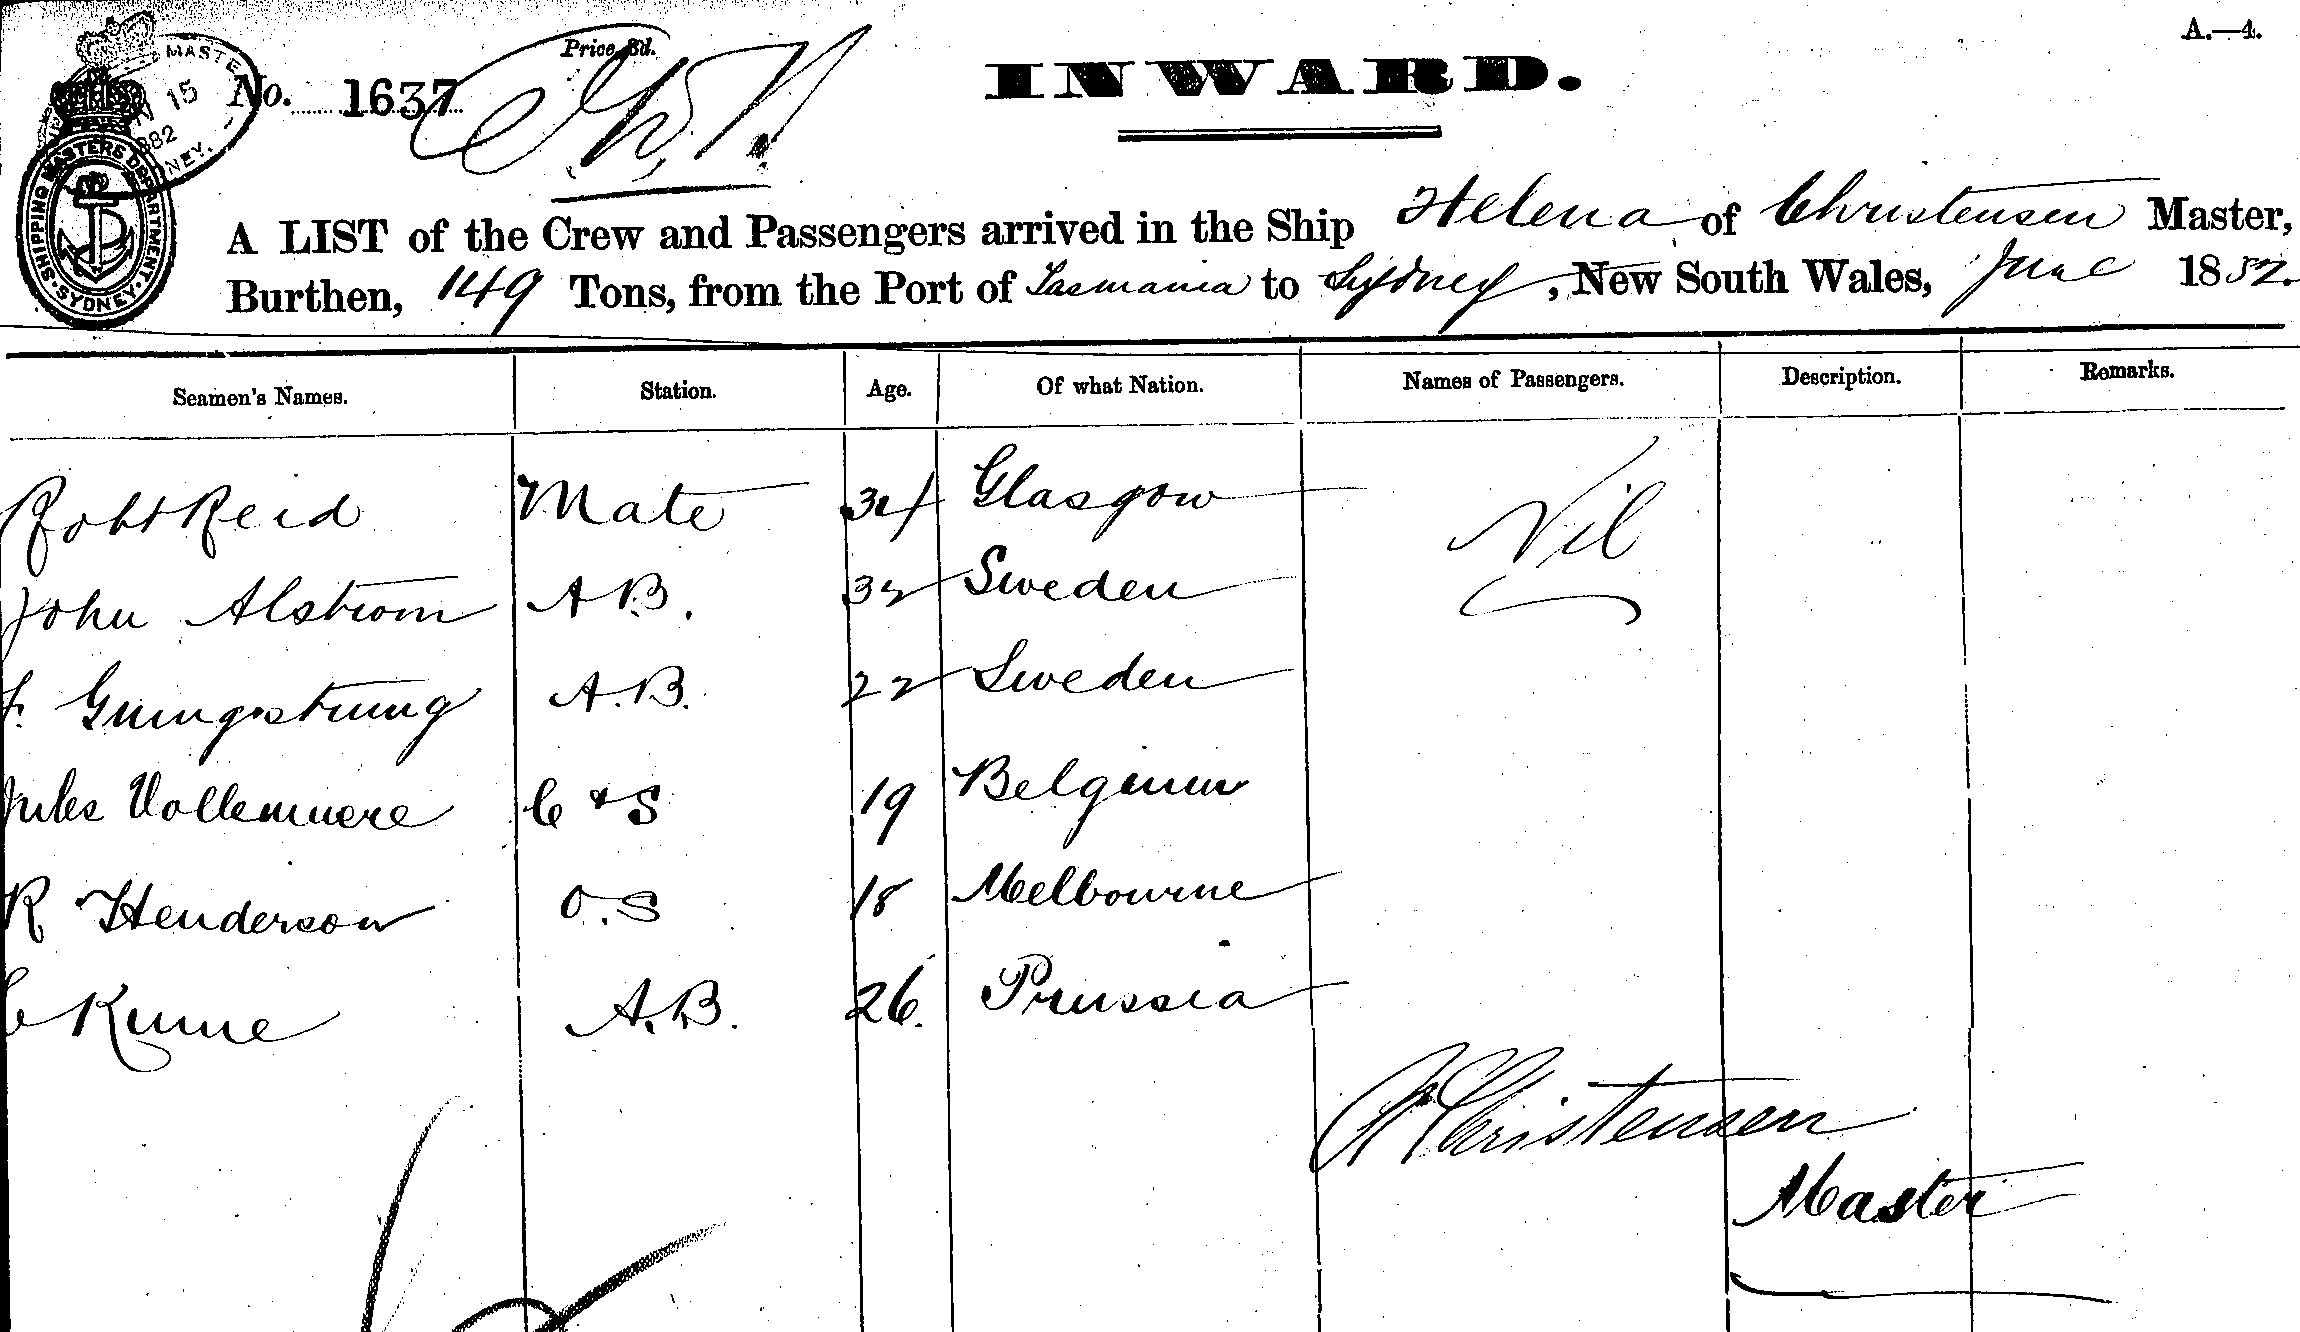 A.—4.
Price 3d.
No. 1637
INWARD.
MASTE
15
882
NEY.
SHIPPING MASTERS DEPARTMENT
SYDNEY
A LIST of the Crew and Passengers arrived in the Ship Helena of Christensen Master,
Burthen, 149 Tons, from the Port of Tasmania to Sydney, New South Wales, June 1882.
Seamen's Names. Station. Age. Of what Nation. Names of Passengers. Description. Remarks.
Robt Reid Mate 34 Glasgow Nil
John Alstrom A B. 32 Sweden
A.B. 22 Sweden
Jules Vollemuere C & S 19 Belgium
R Henderson O.S 18 Melbourne
C Kunne A.B. 26. Prussia
Christensen
Master